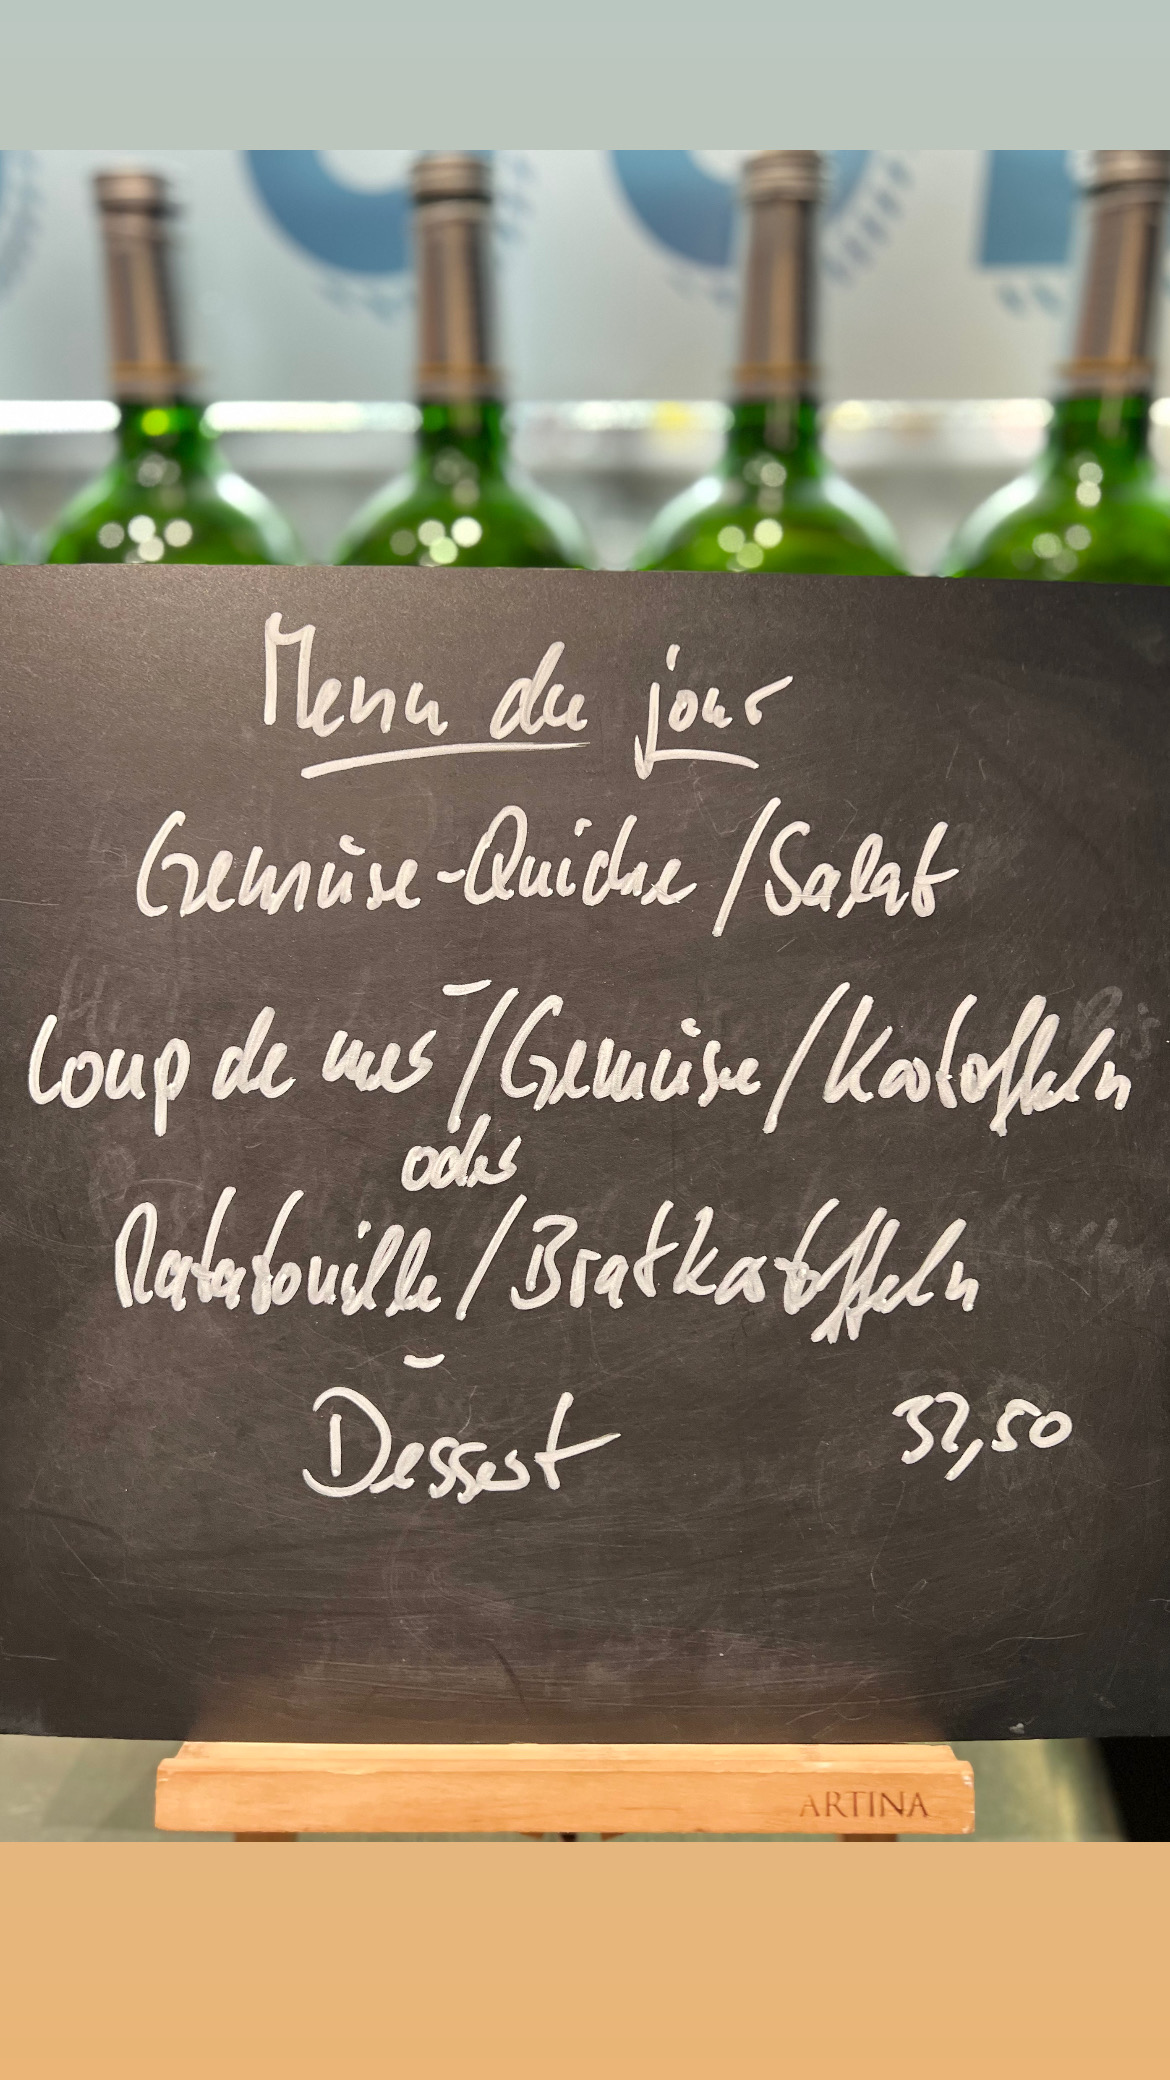 Menu du jour
Gemüse-Quiche / Salat
-
Loup de mer / Gemüse / Kartoffeln
oder
Ratatouille / Bratkartoffeln
-
Dessert 32,50
ARTINA